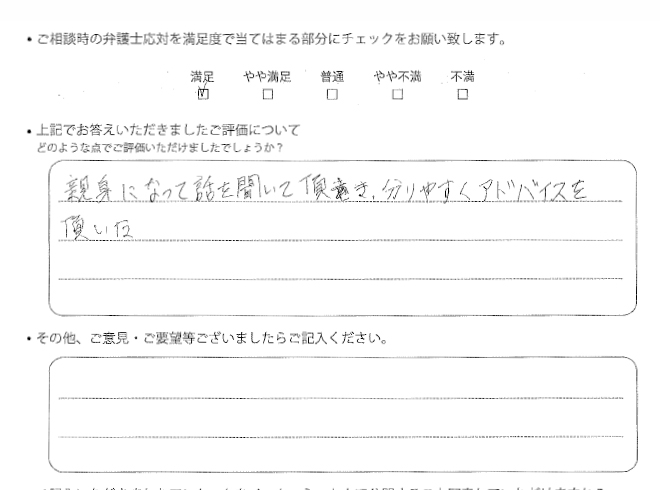 ・ご相談時の弁護士応対を満足度で当てはまる部分にチェックをお願い致します。
満足 やや満足 普通 やや不満 不満
☑ □ □ □ □
・上記でお答えいただきましたご評価について
どのような点でご評価いただけましたでしょうか？
親身になって話を聞いて頂き、分りやすくアドバイスを
頂いた
・その他、ご意見・ご要望等ございましたらご記入ください。